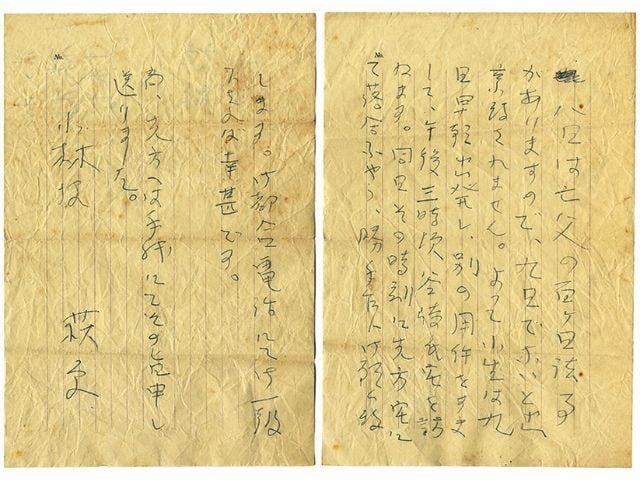 No.
八日は亡父の百ヶ日法事
がありますので、九日でないと出
京致されません。よって小生は九
日早朝出発し、別の用件をすま
して、午後三時頃氏宅を訪
ねます。同日その時刻に先方宅に
て落合ふやう、勝手乍ら御願ひ致
No.
します。御都合電話にて御一報
下さらば幸甚です。
尚、先方へは手紙にてその旨申し
送りました。
小林様